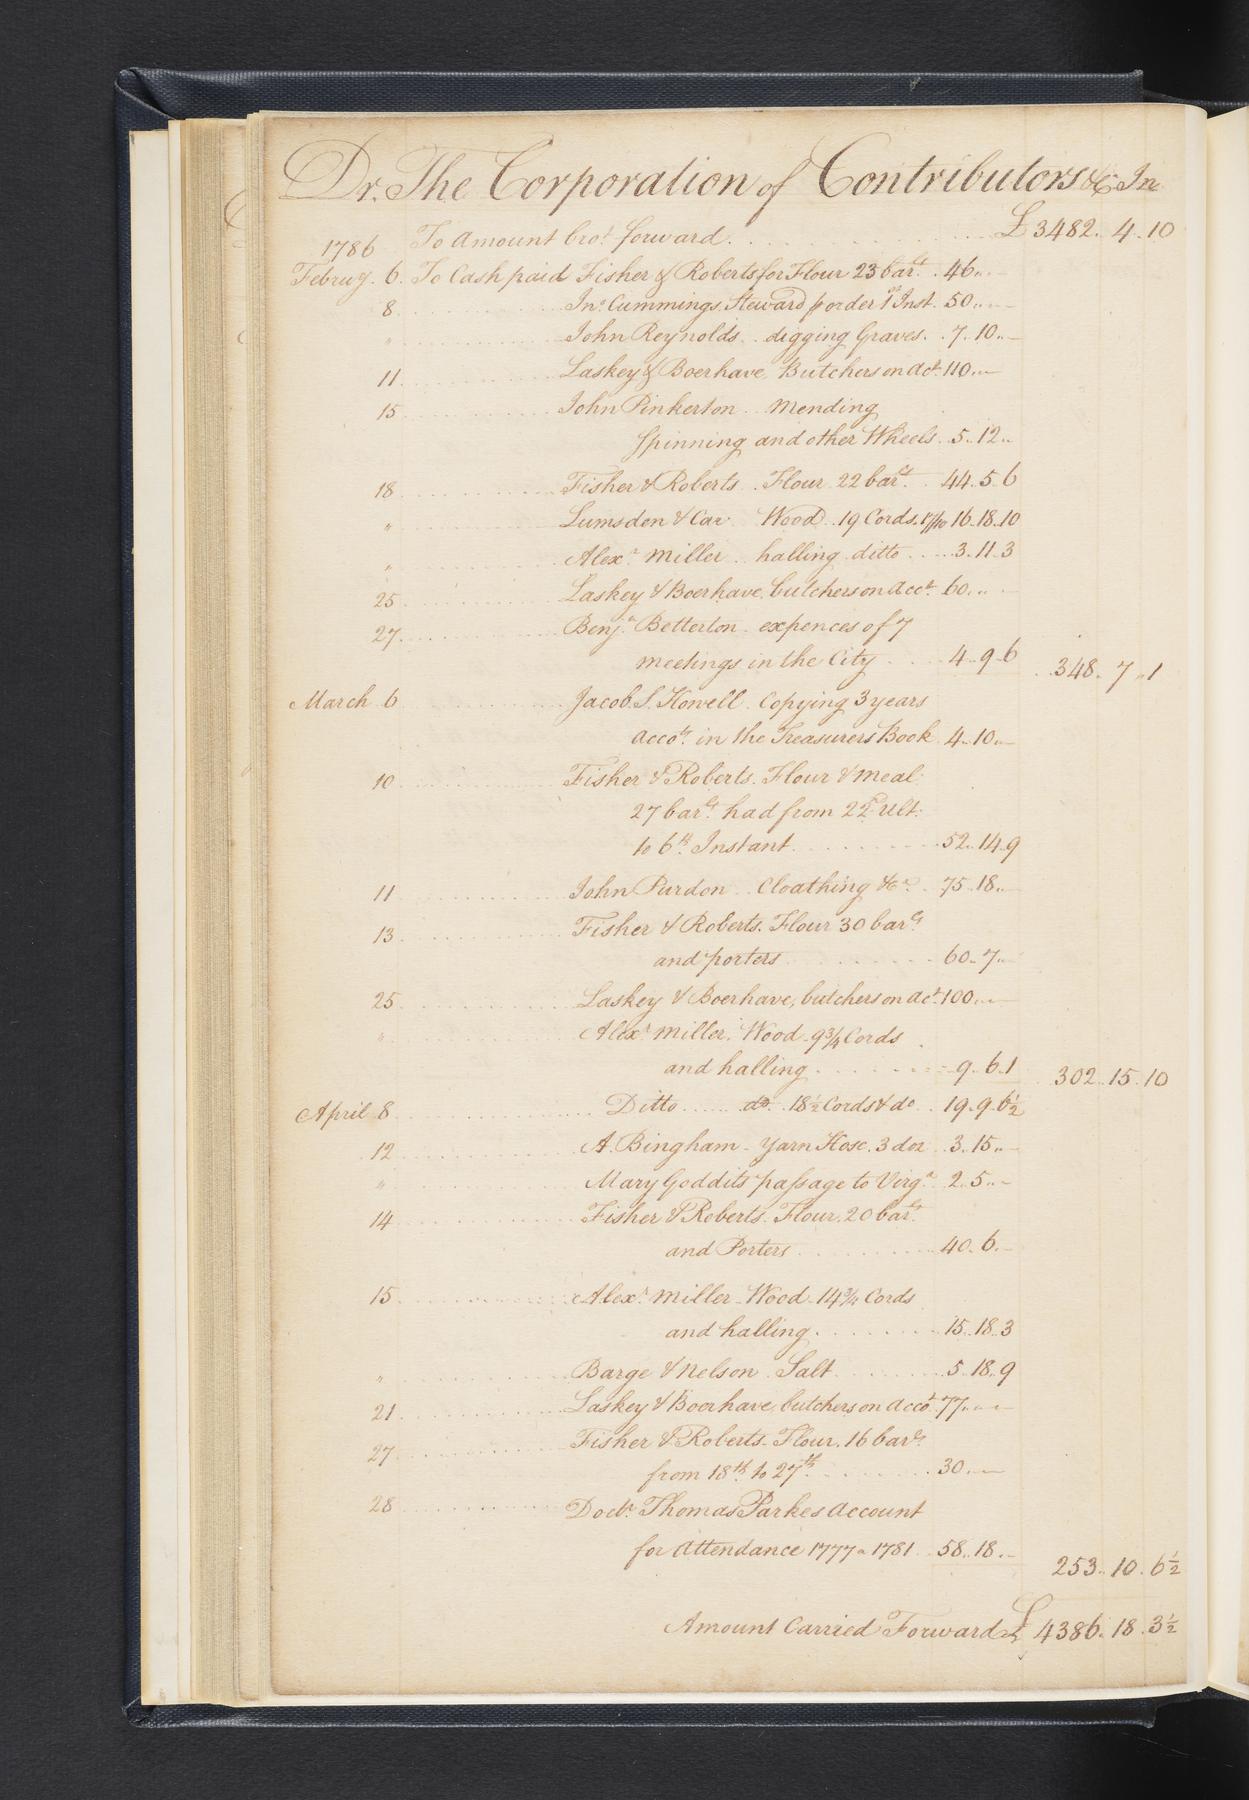 Dr. The Corporation of Contributors &c In
1786 To Amount bro.t forward . . . £3482. 4. 10
Februy. 6. To Cash paid Fisher & Roberts for Flour 23 bar.ls . 46 .. —
8 Jn.o Cummings Steward p order 1st Inst. 50 .. —
" John Reynolds .. digging Graves . 7. 10 .. —
11 Laskey & Boerhave Butchers on Acct. 110 .. —
15 John Pinkerton .. Mending
Spinning and other Wheels . 5. 12 ..
18 Fisher & Roberts .. Flour 22 bar.ls . 44. 5. 6
" Lumsdon & Car Wood .. 19 Cords. 17/10 16. 18. 10
" Alex.r Miller .. halling ditto .... 3. 11. 3
25 Laskey & Boerhave, butchers on Acct. 60 .. —
27 Benj.n Betterton . expences of 7
meetings in the City . . 4. 9. 6 348. 7. 1
March 6 Jacob S. Howell . Copying 3 years
acco.ts in the Treasurers Book 4. 10 .. —
10 Fisher & Roberts. Flour & Meal
27 bar.ls had from 22d Ult:
to 6.th Instant . . . 52. 14. 9
11 John Purdon .. Cloathing &c. . 75. 18 .. —
13 Fisher & Roberts. Flour 30 bar.ls
and porters . . . 60. 7 .. —
25 Laskey & Boerhave, butchers on Act. 100 .. —
" Alex.r Miller. Wood . 9¾ Cords
and halling . . . 9. 6. 1 302. 15. 10
April 8 Ditto ...... do. 18½ Cords & do . . 19. 9. 6½
12 A. Bingham - Yarn Hose. 3 doz 3. 15 .. —
" Mary Goddits passage to Virg.a 2. 5 .. —
14 Fisher & Roberts. Flour. 20 bar.ls
and Porters . . . 40. 6. —
15 Alex.r Miller - Wood - 14¾ Cords
and halling . . . 15. 18. 3
" Barge & Nelson . Salt . . . 5. 18. 9
21 Laskey & Boerhave, butchers on Acco.t 77 .. —
27 Fisher & Roberts - Flour. 16 bar.ls
from 18.th to 27.th . . . 30 .. —
28 Doct.r Thomas Parkes Account
for Attendance 1777 a 1781 .. 58. 18. —
253. 10. 6½
Amount Carried Forward £ 4386. 18. 3½